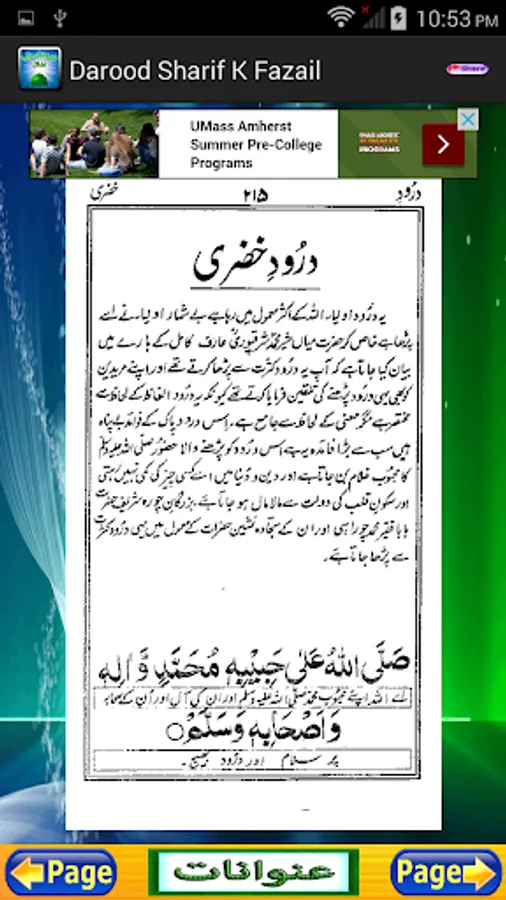 10:53 PM
Darood Sharif K Fazail
Share
UMass Amherst
Summer Pre-College
Programs
خضری ۲۱۵ درُود
درُودِ خضری
یہ درُود اولیاء اللہ کے اکثر معمول میں رہا ہے بے شمار اولیاء نے اسے
پڑھا ہے خاص کر حضرت میاں شیر محمد شرقپوری عارف کامل کے بارے میں
بیان کیا جاتا ہے کہ آپ یہ درُود کثرت سے پڑھا کرتے تھے اور اپنے مریدین
کو بھی یہی درود پڑھنے کی تلقین فرمایا کرتے تھے کیونکہ یہ درُود الفاظ کے لحاظ سے
مختصر ہے مگر معنی کے لحاظ سے جامع ہے۔ اس درود پاک کے فوائد بے پناہ
ہیں سب سے بڑا فائدہ یہ ہے اس درُود کو پڑھنے والا حضور صلی اللہ علیہ وسلم
کا محبوب غلام بن جاتا ہے اور دین و دُنیا میں اسے کسی چیز کی کمی نہیں رہتی
اور سکونِ قلب کی دولت سے مالا مال ہو جاتا ہے، بزرگانِ چورہ شریف حضرت
بابا فقیر محمد چوراہی اور ان کے سجادہ نشین حضرات کے معمول میں یہی درُود کثرت
سے پڑھا جاتا ہے۔
صَلَّى اللهُ عَلٰى حَبِيْبِهٖ مُحَمَّدٍ وَّاٰلِهٖ
اے اللہ اپنے محبوب محمد صلی اللہ علیہ وسلم اور ان کی آل اور اُن کے صحابہ
وَاَصْحَابِهٖ وَسَلَّمْ
پر سلام اور درُود بھیج۔
Page عنوانات Page